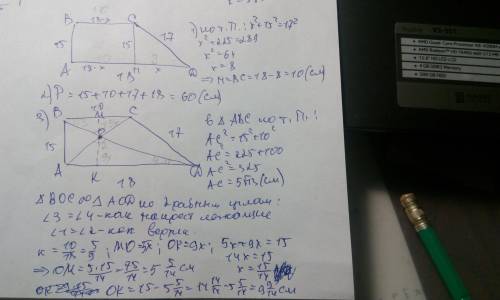 B 18-x C
15 15 17
A 18-x H x D
18
1) по т. П.: x²+15²=17²
x²+225=289
x²=64
x=8
⇒ AH=BC=18-8=10(см)
2) P=15+10+17+18=60(см)
3)
10
B M C
15 O 17
A K D
18
б ΔABC по т. П.:
AC²=15²+10²
AC²=225+100
AC²=325
AC=5√13(см)
ΔBOC ∞ ΔAOD по 2 равным углам:
∠3=∠4-как накрест лежащие
∠1=∠2-как верт.
k=10/18=5/9; MO=5x; OK=9x; 5x+9x=15
14x=15
x=15/14
⇒ OM=5·15/14=75/14=5 5/14 см
OK=15-5 5/14=14 14/14-5 5/14=9 9/14 см